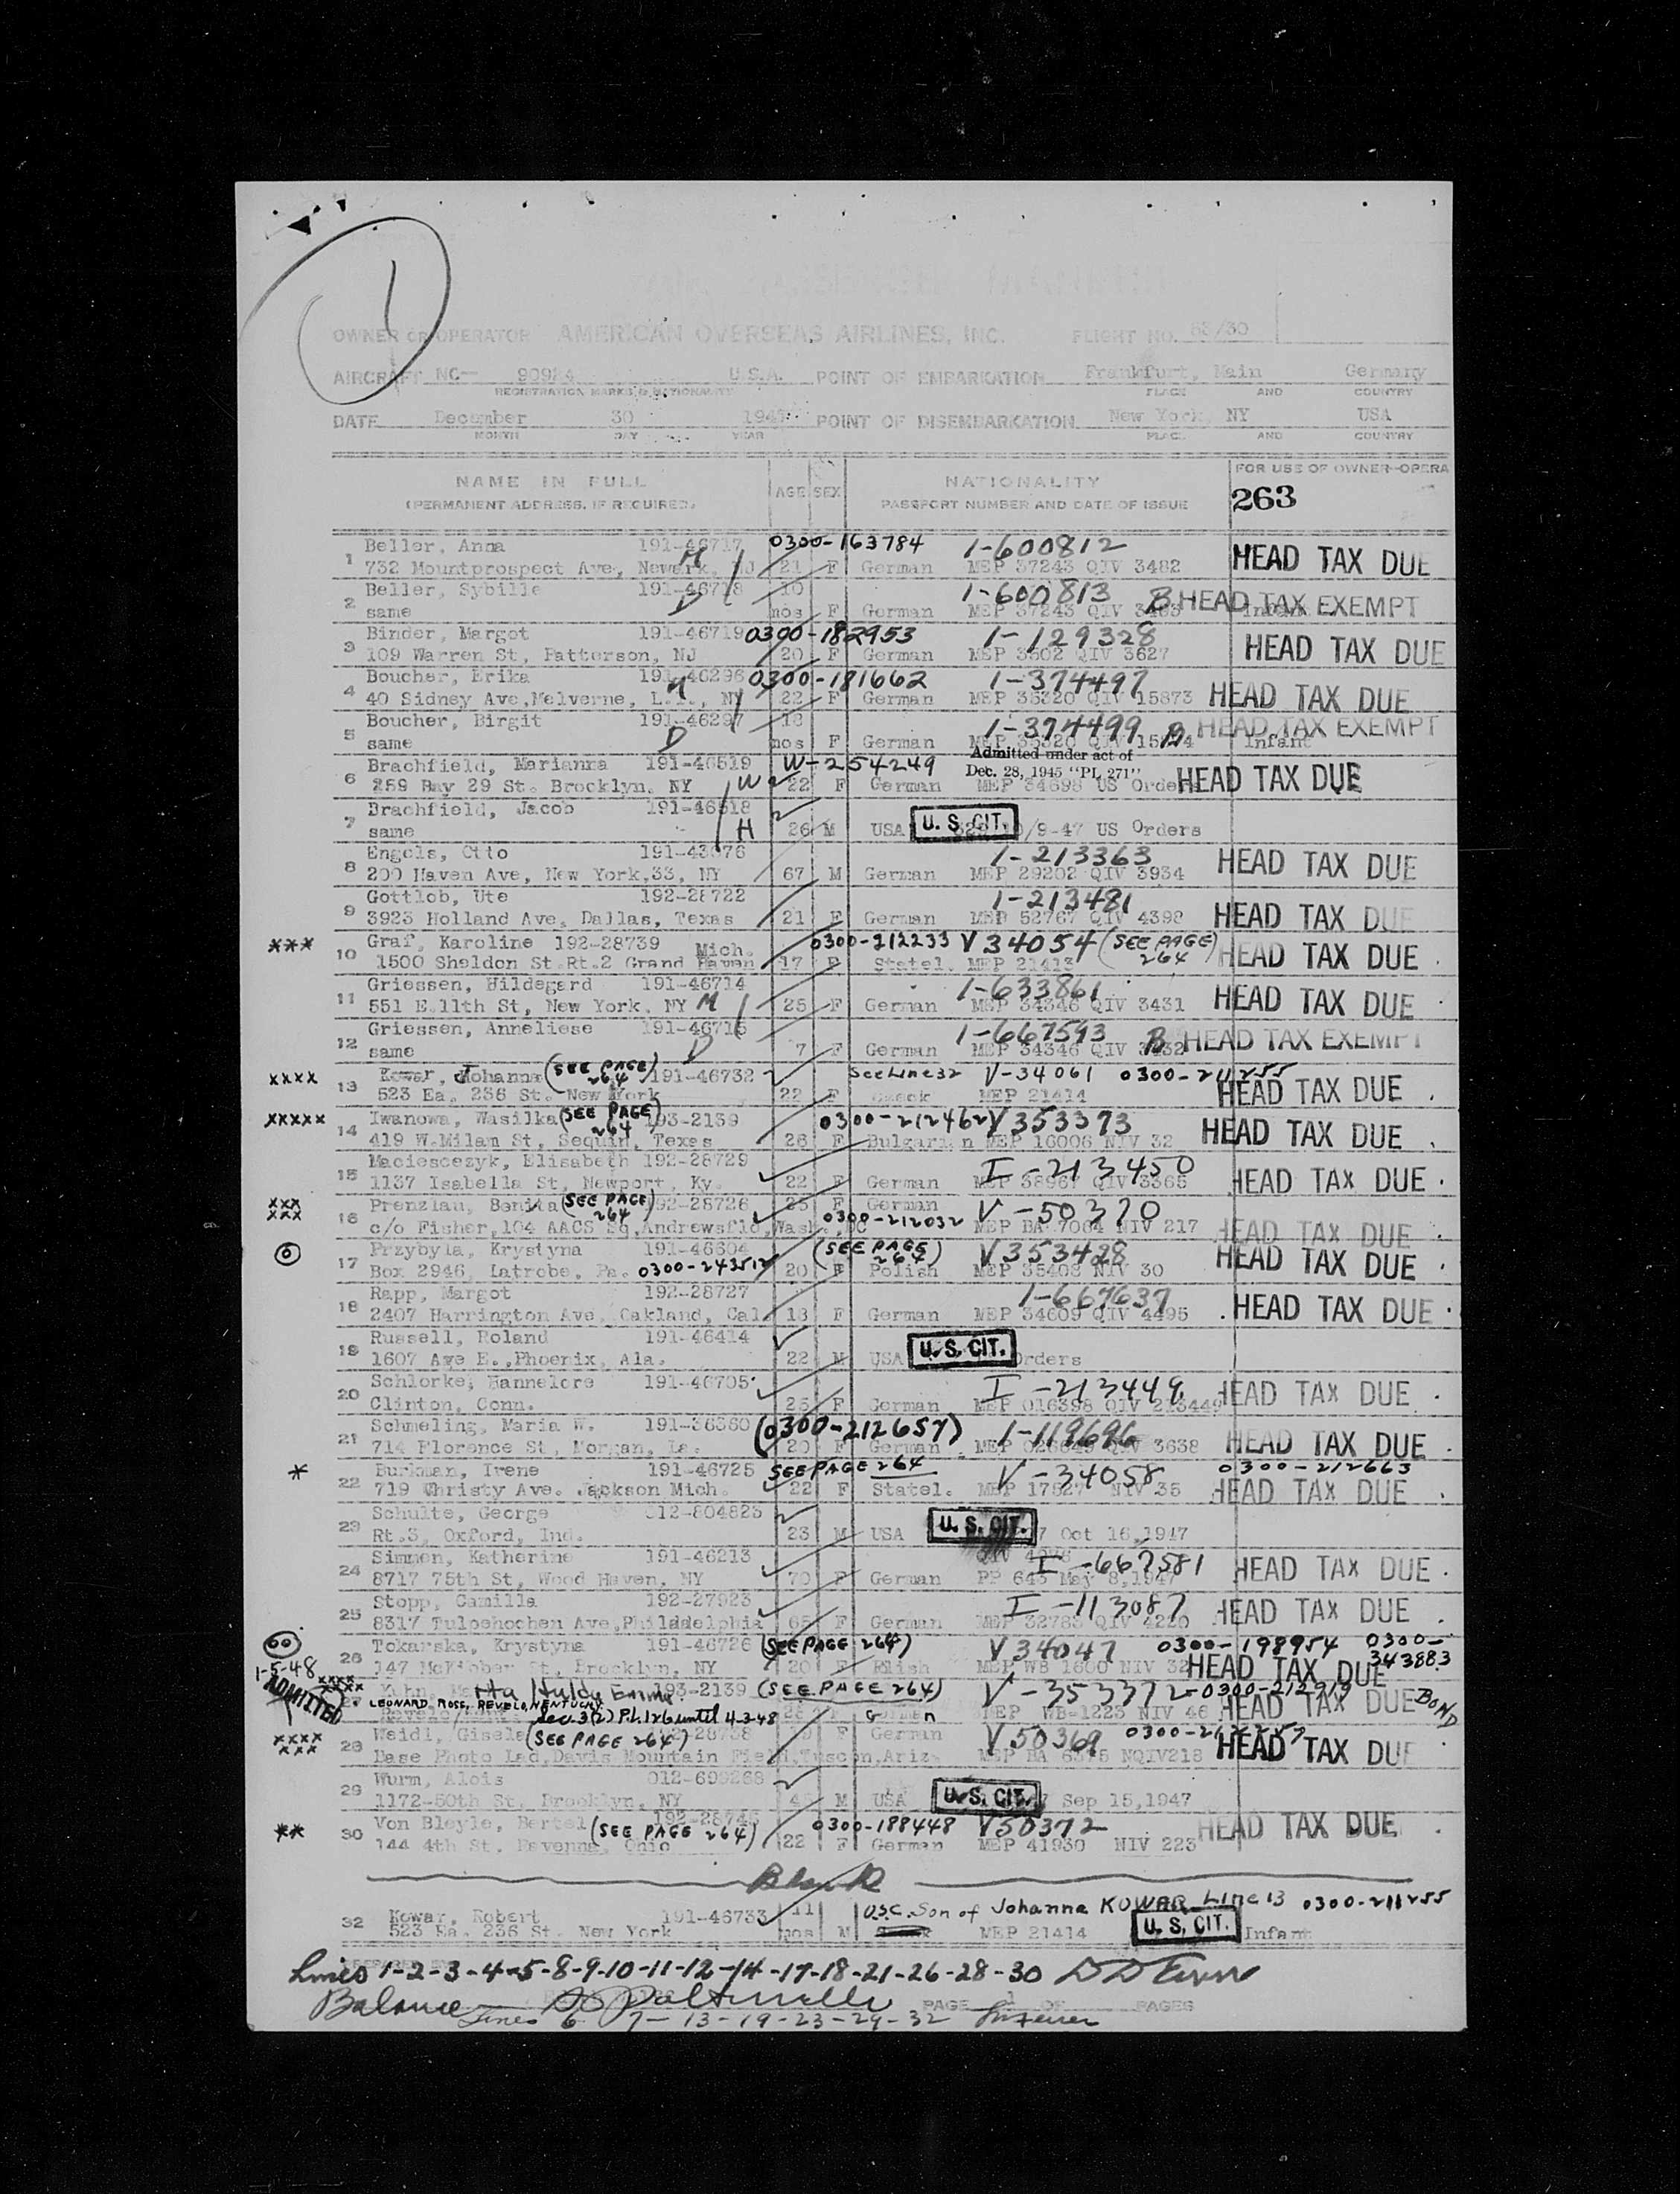 1
OWNER OR OPERATOR AMERICAN OVERSEAS AIRLINES, INC. FLIGHT NO. /30
AIRCRAFT NC— U.S.A. POINT OF EMBARKATION Frankfurt, Main Germany
REGISTRATION MARKS & NATIONALITY PLACE AND COUNTRY
DATE December 30 1947 POINT OF DISEMBARKATION New York, NY USA
MONTH DAY YEAR PLACE AND COUNTRY
NAME IN FULL AGE SEX NATIONALITY FOR USE OF OWNER-OPERA
(PERMANENT ADDRESS, IF REQUIRED) PASSPORT NUMBER AND DATE OF ISSUE 263
1 Beller, Anna 191-46717 0300-163784 1-600812
732 Mountprospect Ave, Newark, NJ M 21 F German MEP 37243 QIV 3482 HEAD TAX DUE
2 Beller, Sybille 191-46718 10 1-600813
same D mos F German MEP 37243 QIV B HEAD TAX EXEMPT Infant
3 Binder, Margot 191-46719 0300-182953 1-129328
109 Warren St, Patterson, NJ 20 F German MEP 3602 QIV 3627 HEAD TAX DUE
4 Boucher, Erika 191-46296 0300-181662 1-374497
40 Sidney Ave, Melverne, L.I., NY M 22 F German MEP 35320 QIV 15873 HEAD TAX DUE
5 Boucher, Birgit 191-46297 18 1-374499 B HEAD TAX EXEMPT
same D mos F German MEP 35320 QIV Infant
Admitted under act of
6 Brachfield, Marianna 191-46519 W-254249 Dec. 28, 1945 "PL 271"
259 Bay 29 St. Brooklyn, NY W 22 F German MEP 34698 US Orders HEAD TAX DUE
7 Brachfield, Jacob 191-46518
same H 26 M USA U. S. CIT. /9-47 US Orders
8 Engels, Otto 191-43676 1-213363
200 Haven Ave, New York,33, NY 67 M German MEP 29202 QIV 3934 HEAD TAX DUE
9 Gottlob, Ute 192-28722 1-213481
3923 Holland Ave, Dallas, Texas 21 F German MEP 52767 QIV 4398 HEAD TAX DUE
*** 10 Graf, Karoline 192-28739 Mich. 0300-212233 V 34054 (SEE PAGE 264)
1500 Sheldon St.Rt.2 Grand Haven 17 F Statel. MEP 21413 HEAD TAX DUE
11 Griessen, Hildegard 191-46714 1-633861
551 E.11th St, New York, NY M 25 F German MEP 34346 QIV 3431 HEAD TAX DUE
12 Griessen, Anneliese 191-46715 1-667593
same D 7 F German MEP 34346 QIV B HEAD TAX EXEMPT
xxxx 13 Kowar, Johanna (SEE PAGE 264) 191-46732 See Line 32 V-34061 0300-211255
523 Ea. 236 St. New York 22 F MEP 21414 HEAD TAX DUE
xxxxx 14 Iwanowa, Wasilka (SEE PAGE 264) 193-2139 0300-212462 V353373
419 W.Milam St, Sequin, Texas 26 F Bulgarian MEP 16006 NIV 32 HEAD TAX DUE
15 Maciesceyk, Elisabeth 192-28729 I-213450
1137 Isabella St, Newport, Ky. 22 F German MEP 38967 QIV 3365 HEAD TAX DUE
xxx
xxx 16 Prenzlau, Bonita (SEE PAGE 264) 192-28726 25 F German V-50370
c/o Fisher,104 AACS Sq,Andrewsfld,Wash,DC 0300-212032 MEP BA 7004 NIV 217 HEAD TAX DUE
17 Przybyla, Krystyna 191-46604 (SEE PAGE 264) V353428
Box 2946, Latrobe, Pa. 0300-243512 20 F Polish MEP 35408 NIV 30 HEAD TAX DUE
18 Rapp, Margot 192-28727 1-667637
2407 Harrington Ave, Oakland, Cal. 18 F German MEP 34609 QIV 4495 HEAD TAX DUE
19 Russell, Roland 191-46414
1607 Ave E.,Phoenix, Ala. 22 M USA U. S. CIT. Orders
20 Schlorke, Hannelore 191-46705 I-213449
Clinton, Conn. 25 F German MEP 016398 QIV 213449 HEAD TAX DUE
21 Schmeling, Maria W. 191-36360 (0300-212657) 1-119696
714 Florence St, Morgan, La. 20 F German MEP QIV 3638 HEAD TAX DUE
* 22 Burkman, Irene 191-46725 SEE PAGE 264 V-34058 0300-212663
719 Christy Ave. Jackson Mich. 22 F Statel. MEP 17827 NIV 35 HEAD TAX DUE
23 Schulte, George 012-804823
Rt.3, Oxford, Ind. 23 M USA U. S. CIT. Oct 16,1947
24 Simmon, Katherine 191-46213 I-667581
8717 75th St, Wood Haven, NY 70 F German PP 643 May 8,1947 HEAD TAX DUE
25 Stopp, Camilla 192-27923 I-113087
8317 Tulpehochen Ave,Philadelphia 65 F German MEP 32783 QIV 4220 HEAD TAX DUE
26 Tokarska, Krystyna 191-46726 (SEE PAGE 264) V34047 0300-198954 0300-343883
147 McKibber St, Brooklyn, NY 20 F Polish MEP WB 1600 NIV 32 HEAD TAX DUE
1-5-48 ADMITTED
xxxx
xxxxx Kuhn, Hulda Emma 193-2139 (SEE PAGE 264) V-353372 0300-212919
LEONARD ROSE, REVELO, KENTUCKY Sec. 3(2) P.L. 126 until 4-3-48 German MEP WB-1223 NIV 46 HEAD TAX DUE BOND
xxxx
xxx 28 Weidl, Gisela (SEE PAGE 264) 192-28738 19 F German V50369
Base Photo Lab,Davis Mountain Field,Tuscon,Ariz. MEP BA NQIV218 HEAD TAX DUE
29 Wurm, Alois 012-699268
1172-50th St, Brooklyn, NY 45 M USA U. S. CIT. Sep 15,1947
** 30 Von Bleyle, Bertel (SEE PAGE 264) 192-28745 0300-188448 V50372
144 4th St, Ravenna, Ohio 22 F German MEP 41930 NIV 223 HEAD TAX DUE
Blank
32 Kowar, Robert 191-46733 11 U.S.C. Son of Johanna KOWAR Line 13 0300-211255
523 Ea. 236 St. New York mos M MEP 21414 U. S. CIT. Infant
Lines 1-2-3-4-5-8-9-10-11-12-14-17-18-21-26-28-30
Balance PAGE 1 OF PAGES
Lines 6 7-13-19-23-29-32